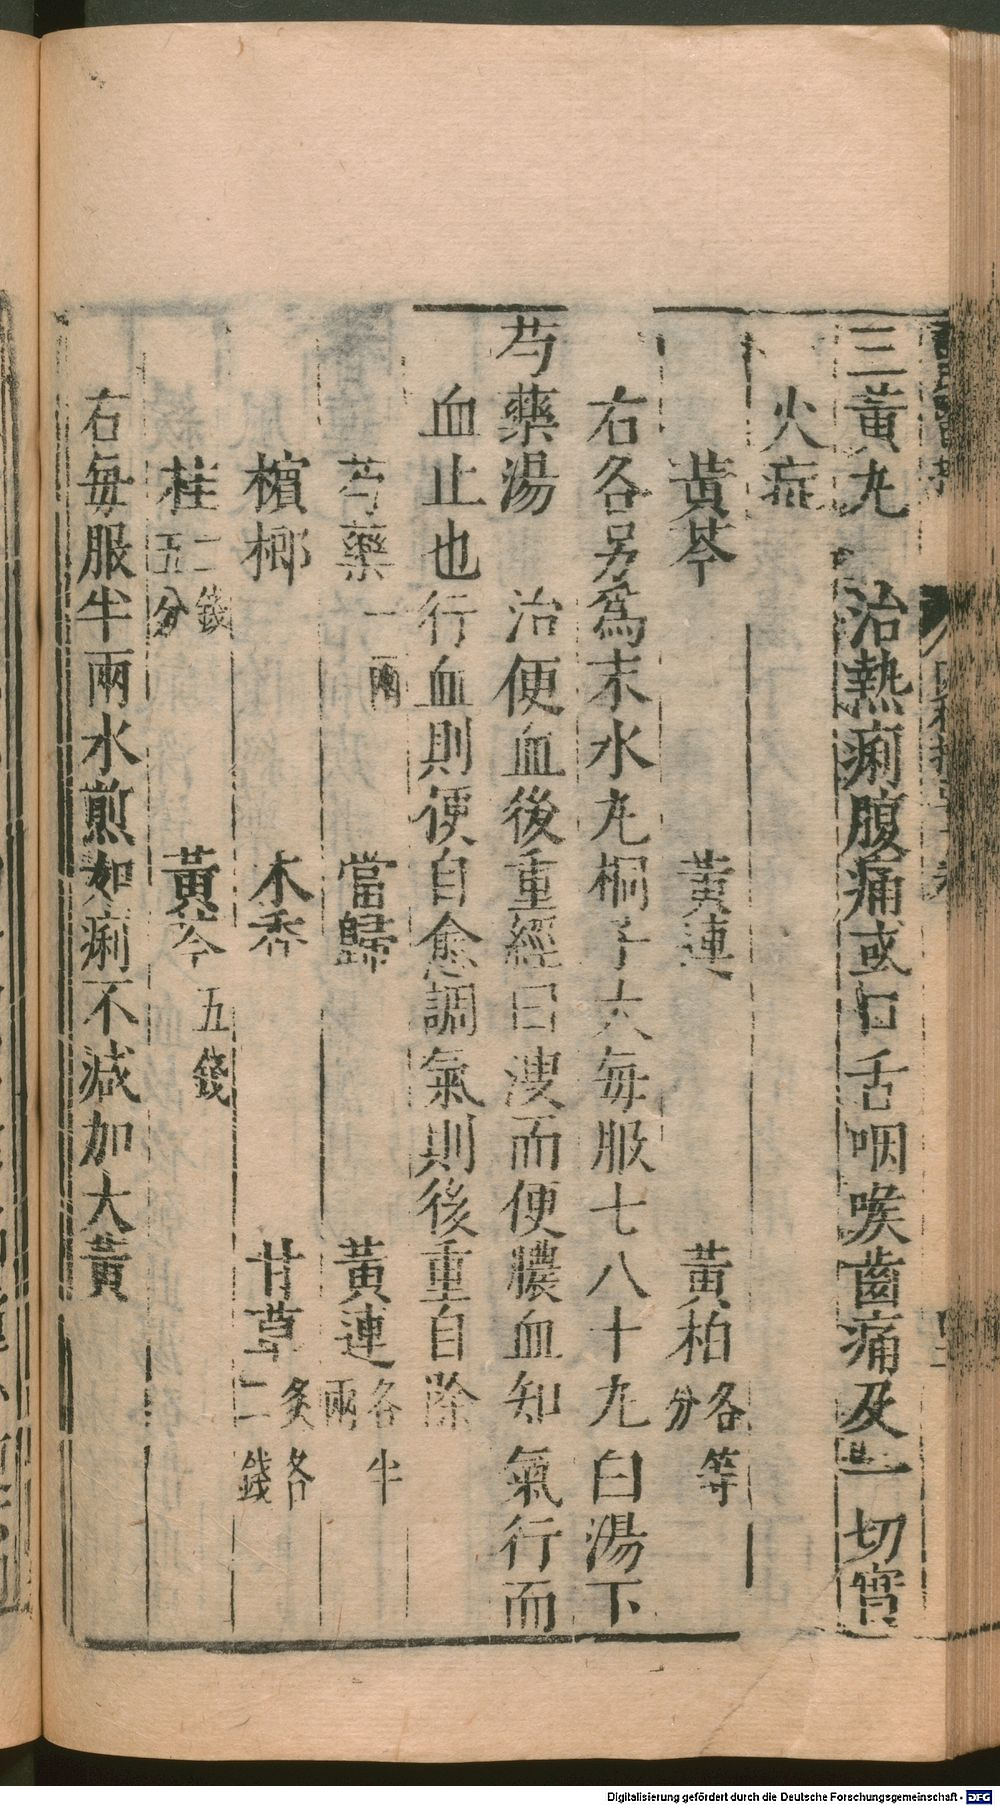 三黃丸　治熱痢腹痛或口舌咽喉齒痛及一切實
火症
黃芩　黃連　黃柏各等分
右各另爲末水丸桐子大每服七八十九白湯下
芍藥湯　治便血後重經曰溲而便膿血知氣行而
血止也行血則便自愈調氣則後重自除
芍藥一兩　當歸　黃連各半兩
檳榔　木香　甘草炙各二錢
桂二錢五分　黃芩五錢
右每服半兩水煎如痢不減加大黃
Digitalisierung gefördert durch die Deutsche Forschungsgemeinschaft - DFG